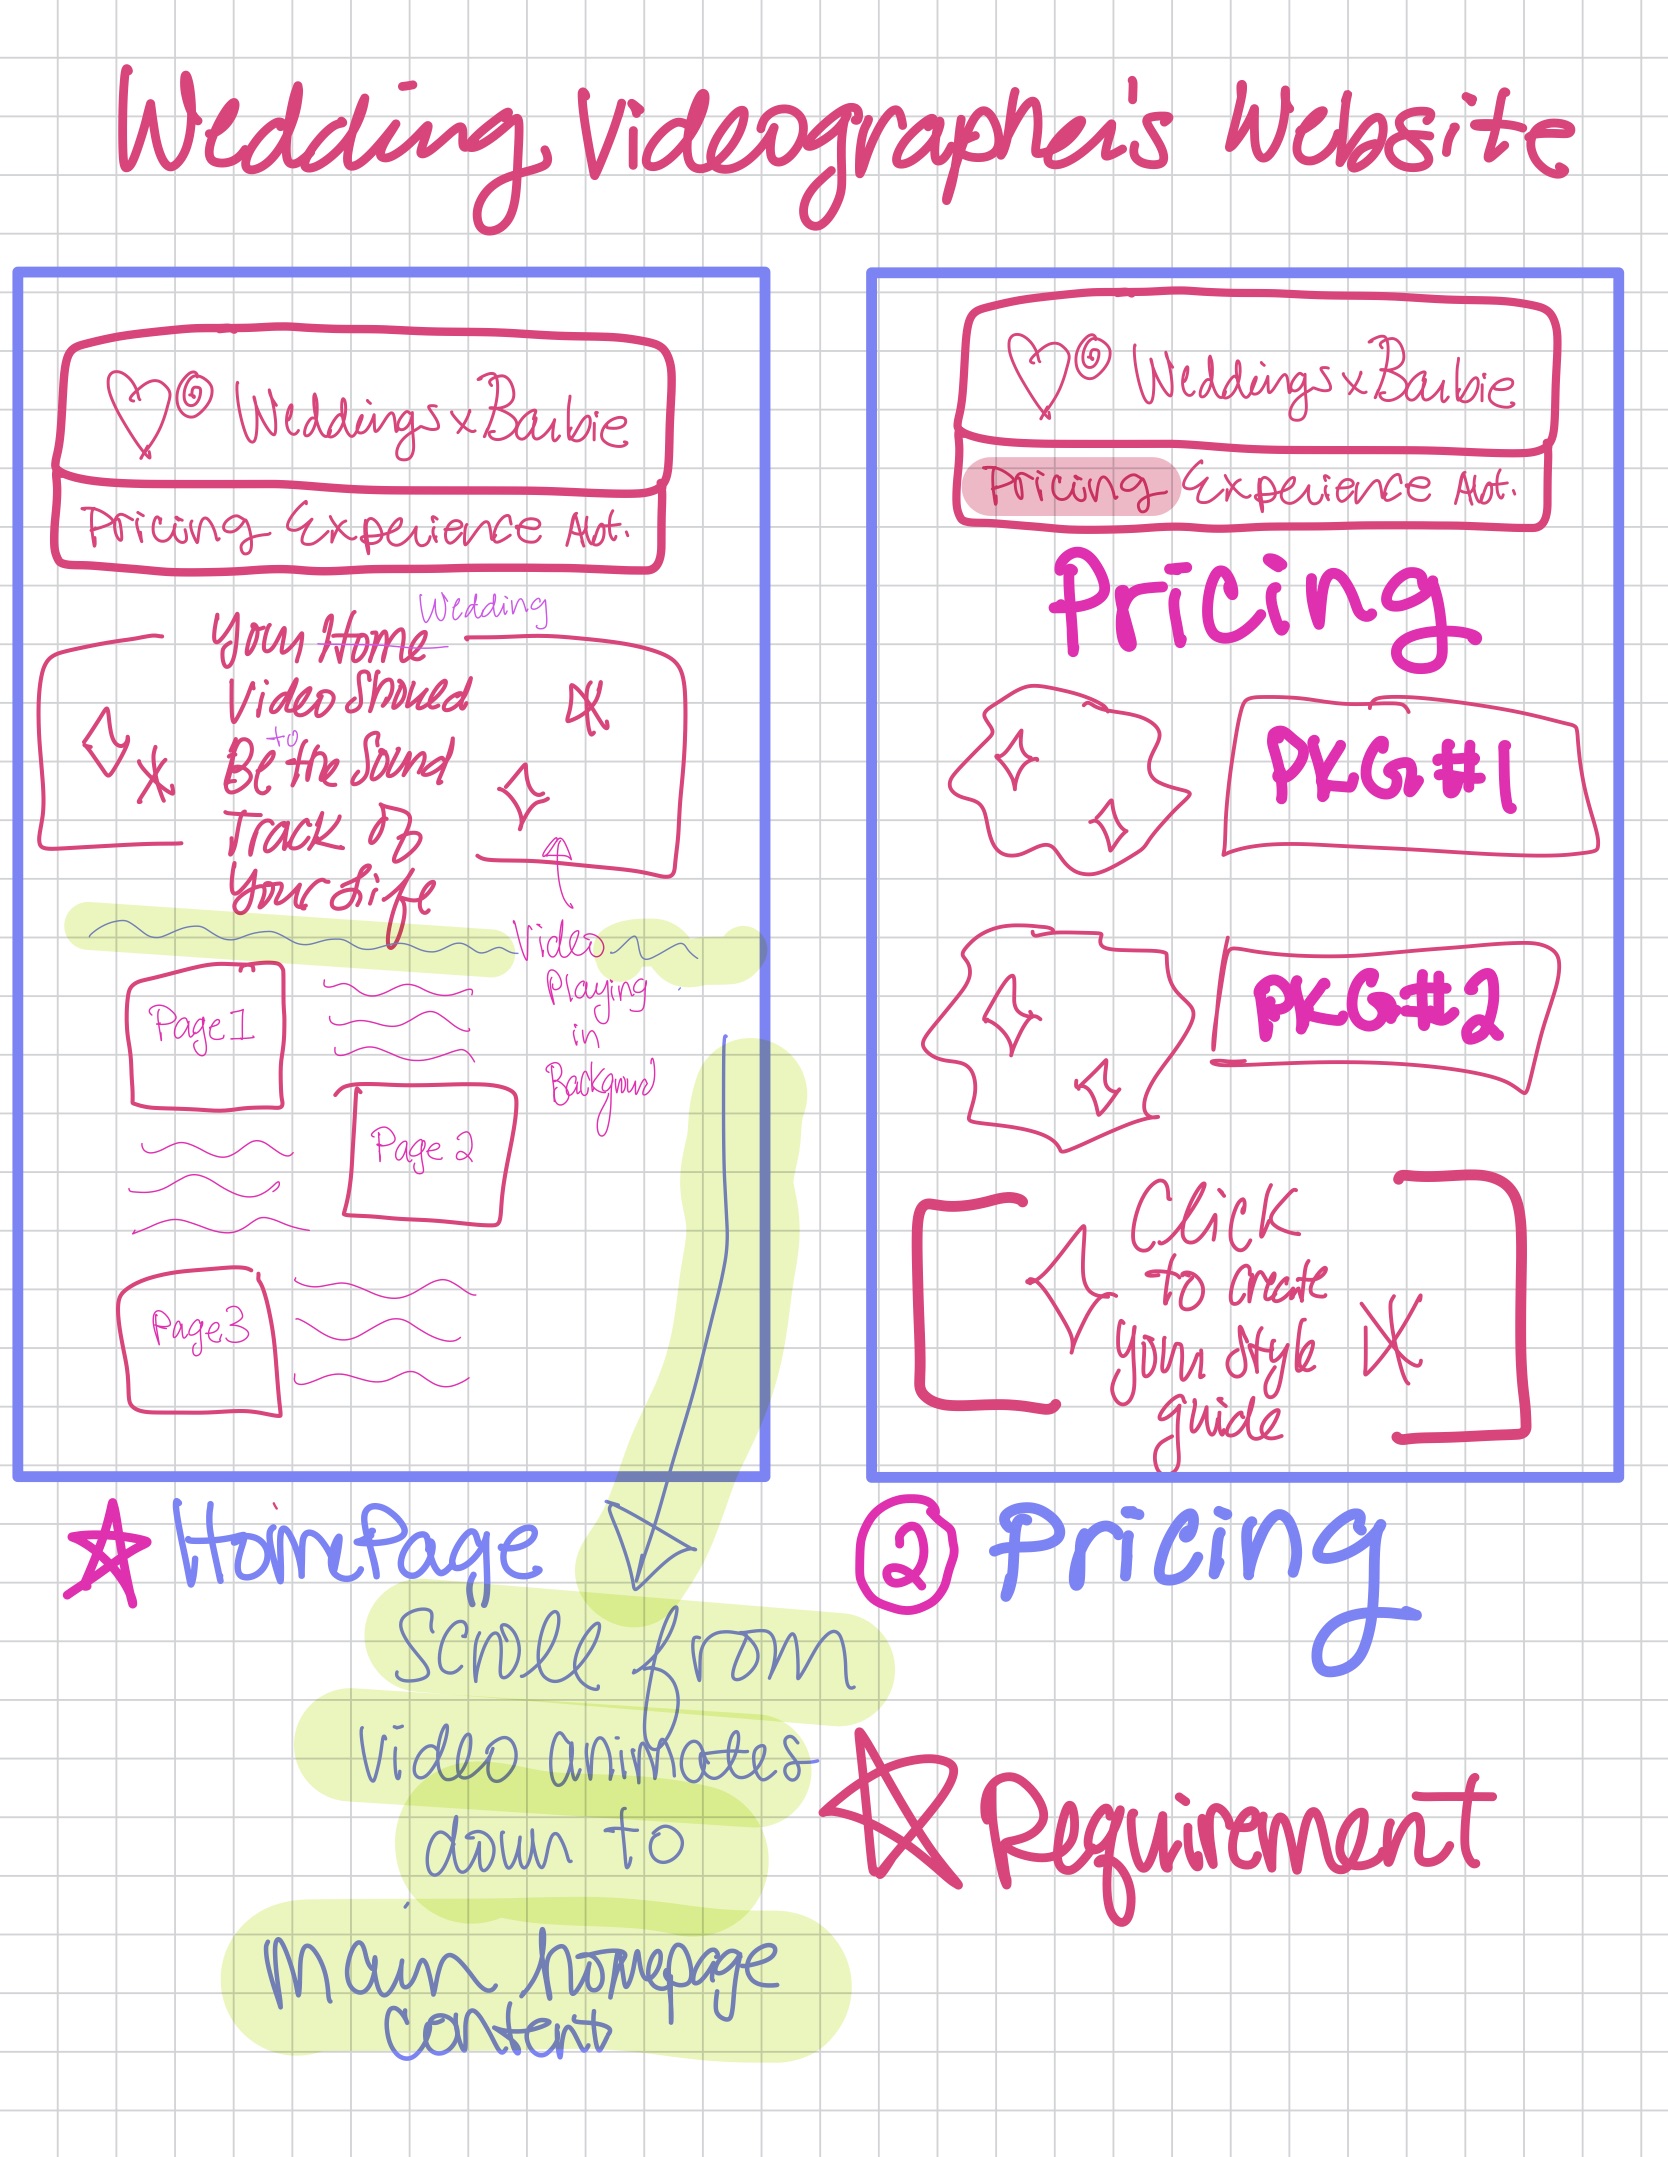 Wedding Videographer's Website
Weddings x Barbie
Pricing Experience Abt.
Wedding
Your Home
Video Should
to
Be the Sound
Track Of
Your Life
Video
Playing
in
Background
Page 1
Page 2
Page 3
HomePage
Scroll from
video animates
down to
main homepage
content
Weddings x Barbie
Pricing Experience Abt.
Pricing
PKG#1
PKG#2
Click
to create
your style
guide
2 Pricing
Requirement